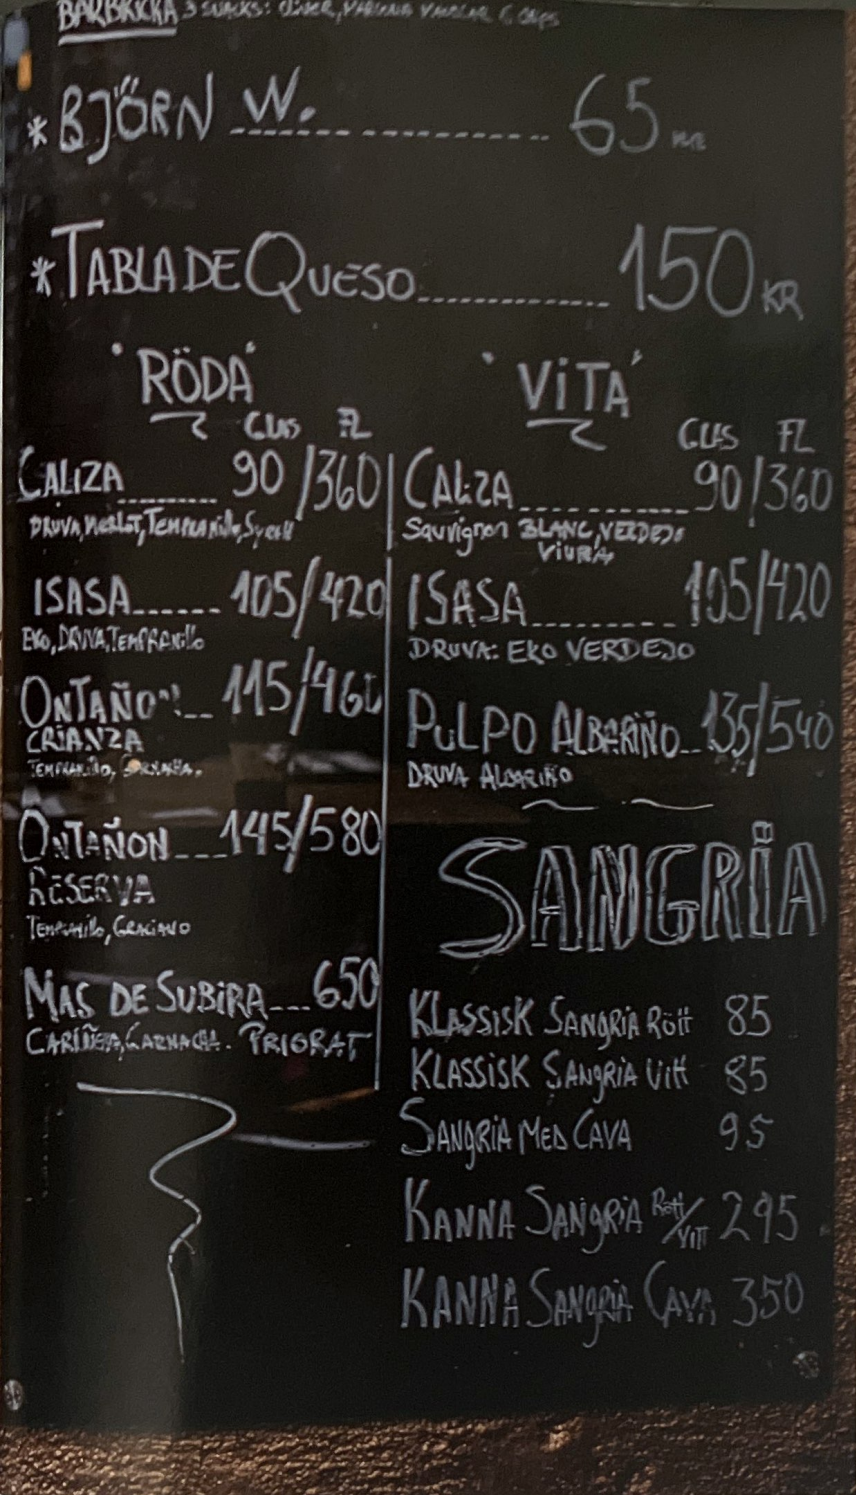 BARBRICKA 3 SNACKS: CHIPS
*BJÖRN W. 65 KR
*TABLA DE QUESO 150 KR
RÖDA
GLAS FL
CALIZA 90/360
DRUVA, MERLOT, TEMPRANILLO, SYRAH
ISASA 105/420
EKO, DRUVA, TEMPRANILLO
ONTAÑON 115/460
CRIANZA
TEMPRANILLO, GARNACHA.
ONTAÑON 145/580
RESERVA
TEMPRANILLO, GRACIANO
MAS DE SUBIRA 650
CARIÑENA, GARNACHA. PRIORAT
VITA
GLAS FL
CALIZA 90/360
Sauvignon BLANC, VERDEJO
VIURA
ISASA 105/420
DRUVA: EKO VERDEJO
PULPO ALBARIÑO 135/540
DRUVA ALBARIÑO
SANGRIA
KLASSISK SANGRIA Rött 85
KLASSISK SANGRIA Vitt 85
SANGRIA MED CAVA 95
KANNA SANGRIA Rött/VITT 295
KANNA SANGRIA CAVA 350